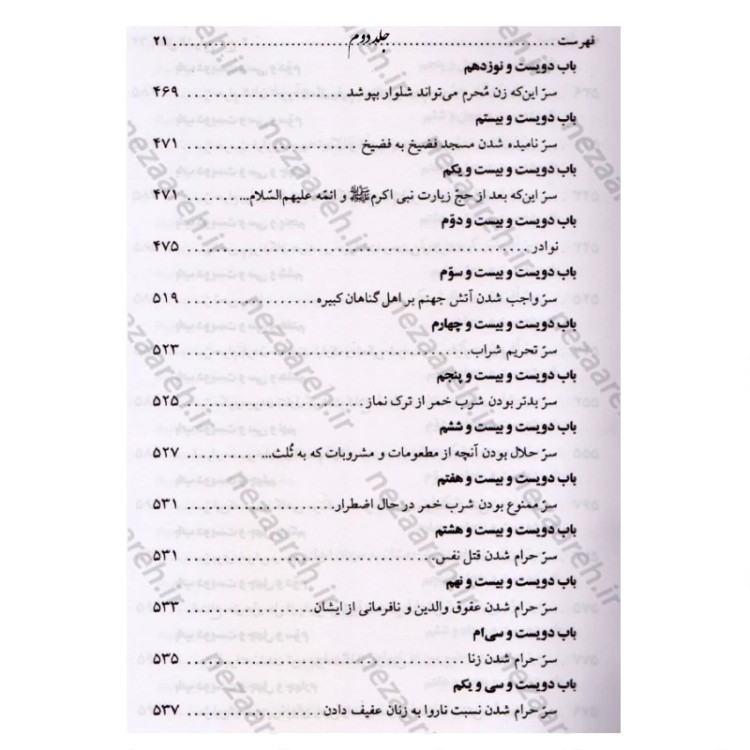 فهرست ........ جلد دوم ........ ۲۱
باب دویست و نوزدهم
سرّ این‌که زن مُحرم می‌تواند شلوار بپوشد ........ ۴۶۹
باب دویست و بیستم
سرّ نامیده شدن مسجد فضیخ به فضیخ ........ ۴۷۱
باب دویست و بیست و یکم
سرّ این‌که بعد از حجّ زیارت نبی اکرمﷺ و ائمّه علیهم‌السّلام... ........ ۴۷۱
باب دویست و بیست و دوّم
نوادر ........ ۴۷۵
باب دویست و بیست و سوّم
سرّ واجب شدن آتش جهنم بر اهل گناهان کبیره ........ ۵۱۹
باب دویست و بیست و چهارم
سرّ تحریم شراب ........ ۵۲۳
باب دویست و بیست و پنجم
سرّ بدتر بودن شرب خمر از ترک نماز ........ ۵۲۵
باب دویست و بیست و ششم
سرّ حلال بودن آنچه از مطعومات و مشروبات که به ثُلث... ........ ۵۲۷
باب دویست و بیست و هفتم
سرّ ممنوع بودن شرب خمر در حال اضطرار ........ ۵۳۱
باب دویست و بیست و هشتم
سرّ حرام شدن قتل نفس ........ ۵۳۱
باب دویست و بیست و نهم
سرّ حرام شدن عقوق والدین و نافرمانی از ایشان ........ ۵۳۳
باب دویست و سی‌اُم
سرّ حرام شدن زنا ........ ۵۳۵
باب دویست و سی و یکم
سرّ حرام شدن نسبت ناروا به زنان عفیف دادن ........ ۵۳۷
nezaareh.ir